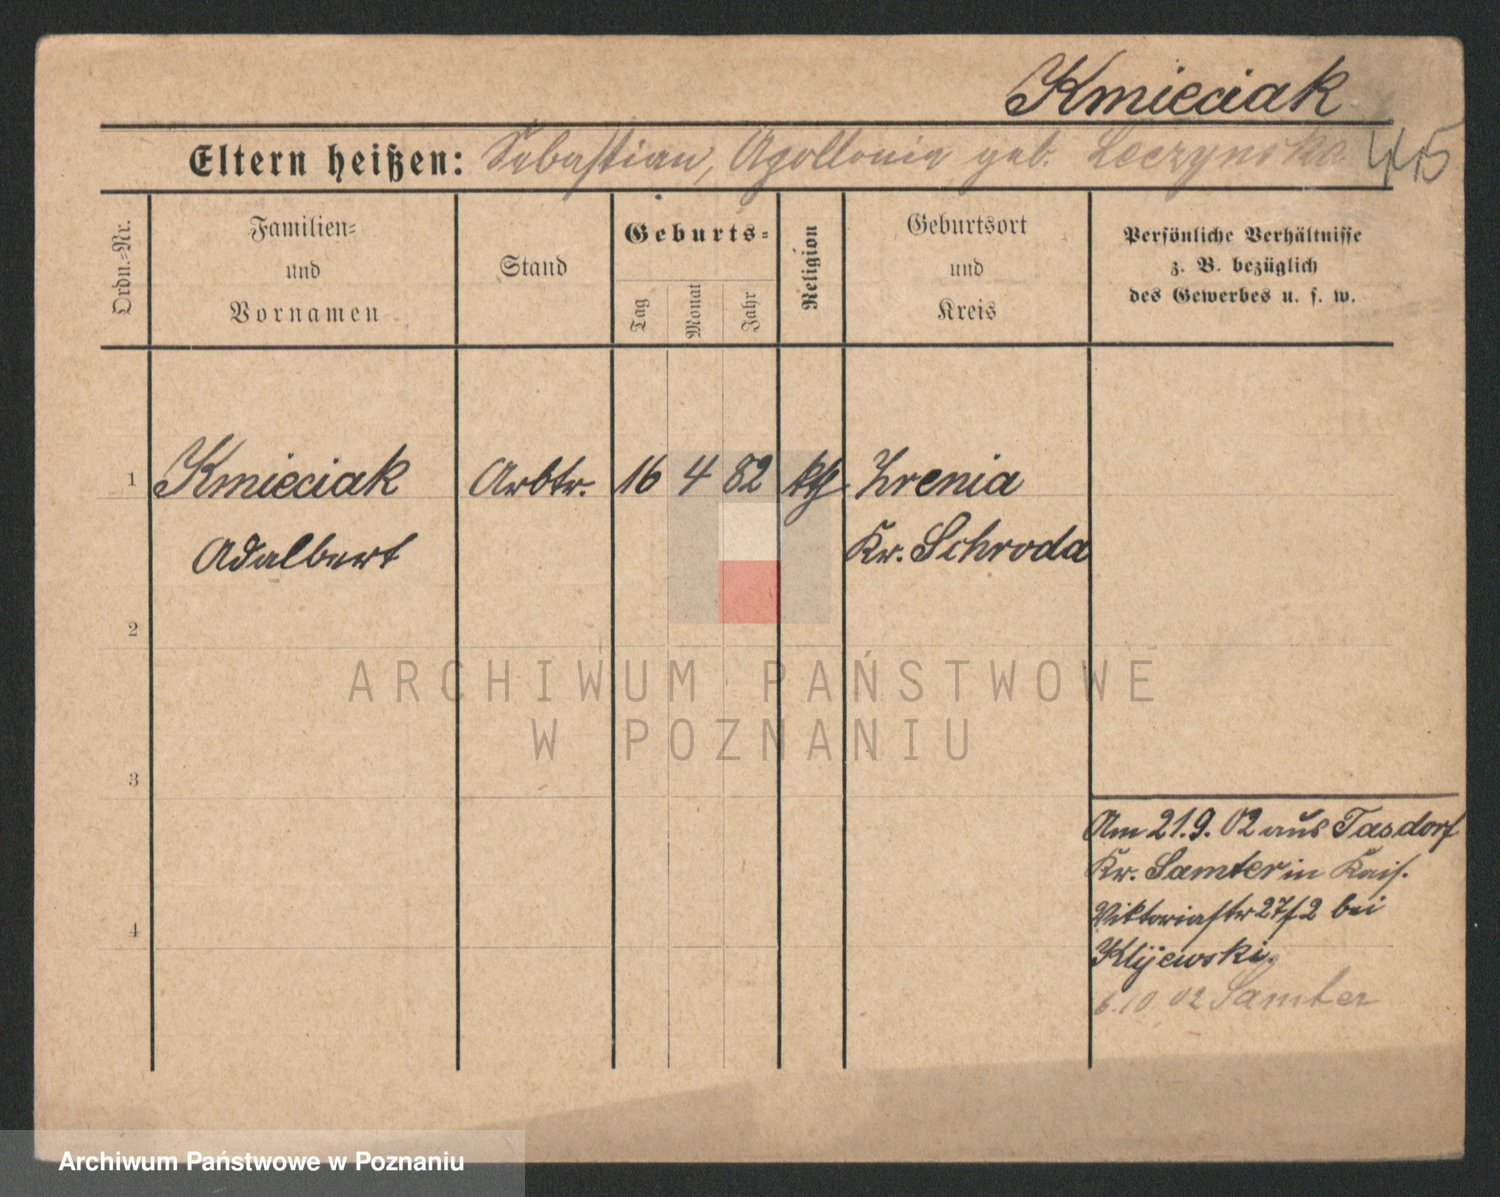 Kmieciak
Eltern heißen: Sebastian, Apollonia geb. Leczynska 445
Ordn.-Nr.
Familien-
und
Vornamen
Stand
Geburts-
Tag
Monat
Jahr
Religion
Geburtsort
und
Kreis
Persönliche Verhältnisse
z. B. bezüglich
des Gewerbes u. s. w.
1 Kmieciak Arbtr. 16 4 82 kth. Zrenia
Adalbert Kr. Schroda
2
ARCHIWUM PAŃSTWOWE
W POZNANIU
3
Am 21.9.02 aus Tasdorf
Kr. Samter in Kais.
Viktoriastr 27/2 bei
4
Klijewski.
6.10.02 Samter
Archiwum Państwowe w Poznaniu